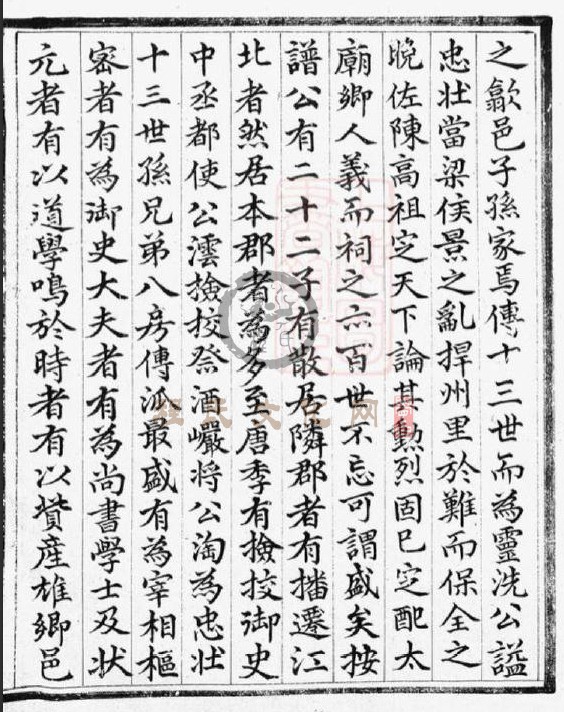 之歙邑子孫家焉傳十三世而為靈洗公諡
忠壯當梁侯景之亂捍州里於難而保全之
晚佐陳高祖定天下論其勳烈固已定配太
廟鄉人義而祠之亦百世不忘可謂盛矣按
譜公有二十二子有散居隣郡者有播遷江
北者然居本郡者為多至唐季有撿挍御史
中丞都使公澐撿挍祭酒巘將公淘為忠壯
十三世孫兄弟八房傳派最盛有為宰相樞
密者有為御史大夫者有為尚書學士及状
元者有以道學鳴於時者有以貲産雄鄉邑